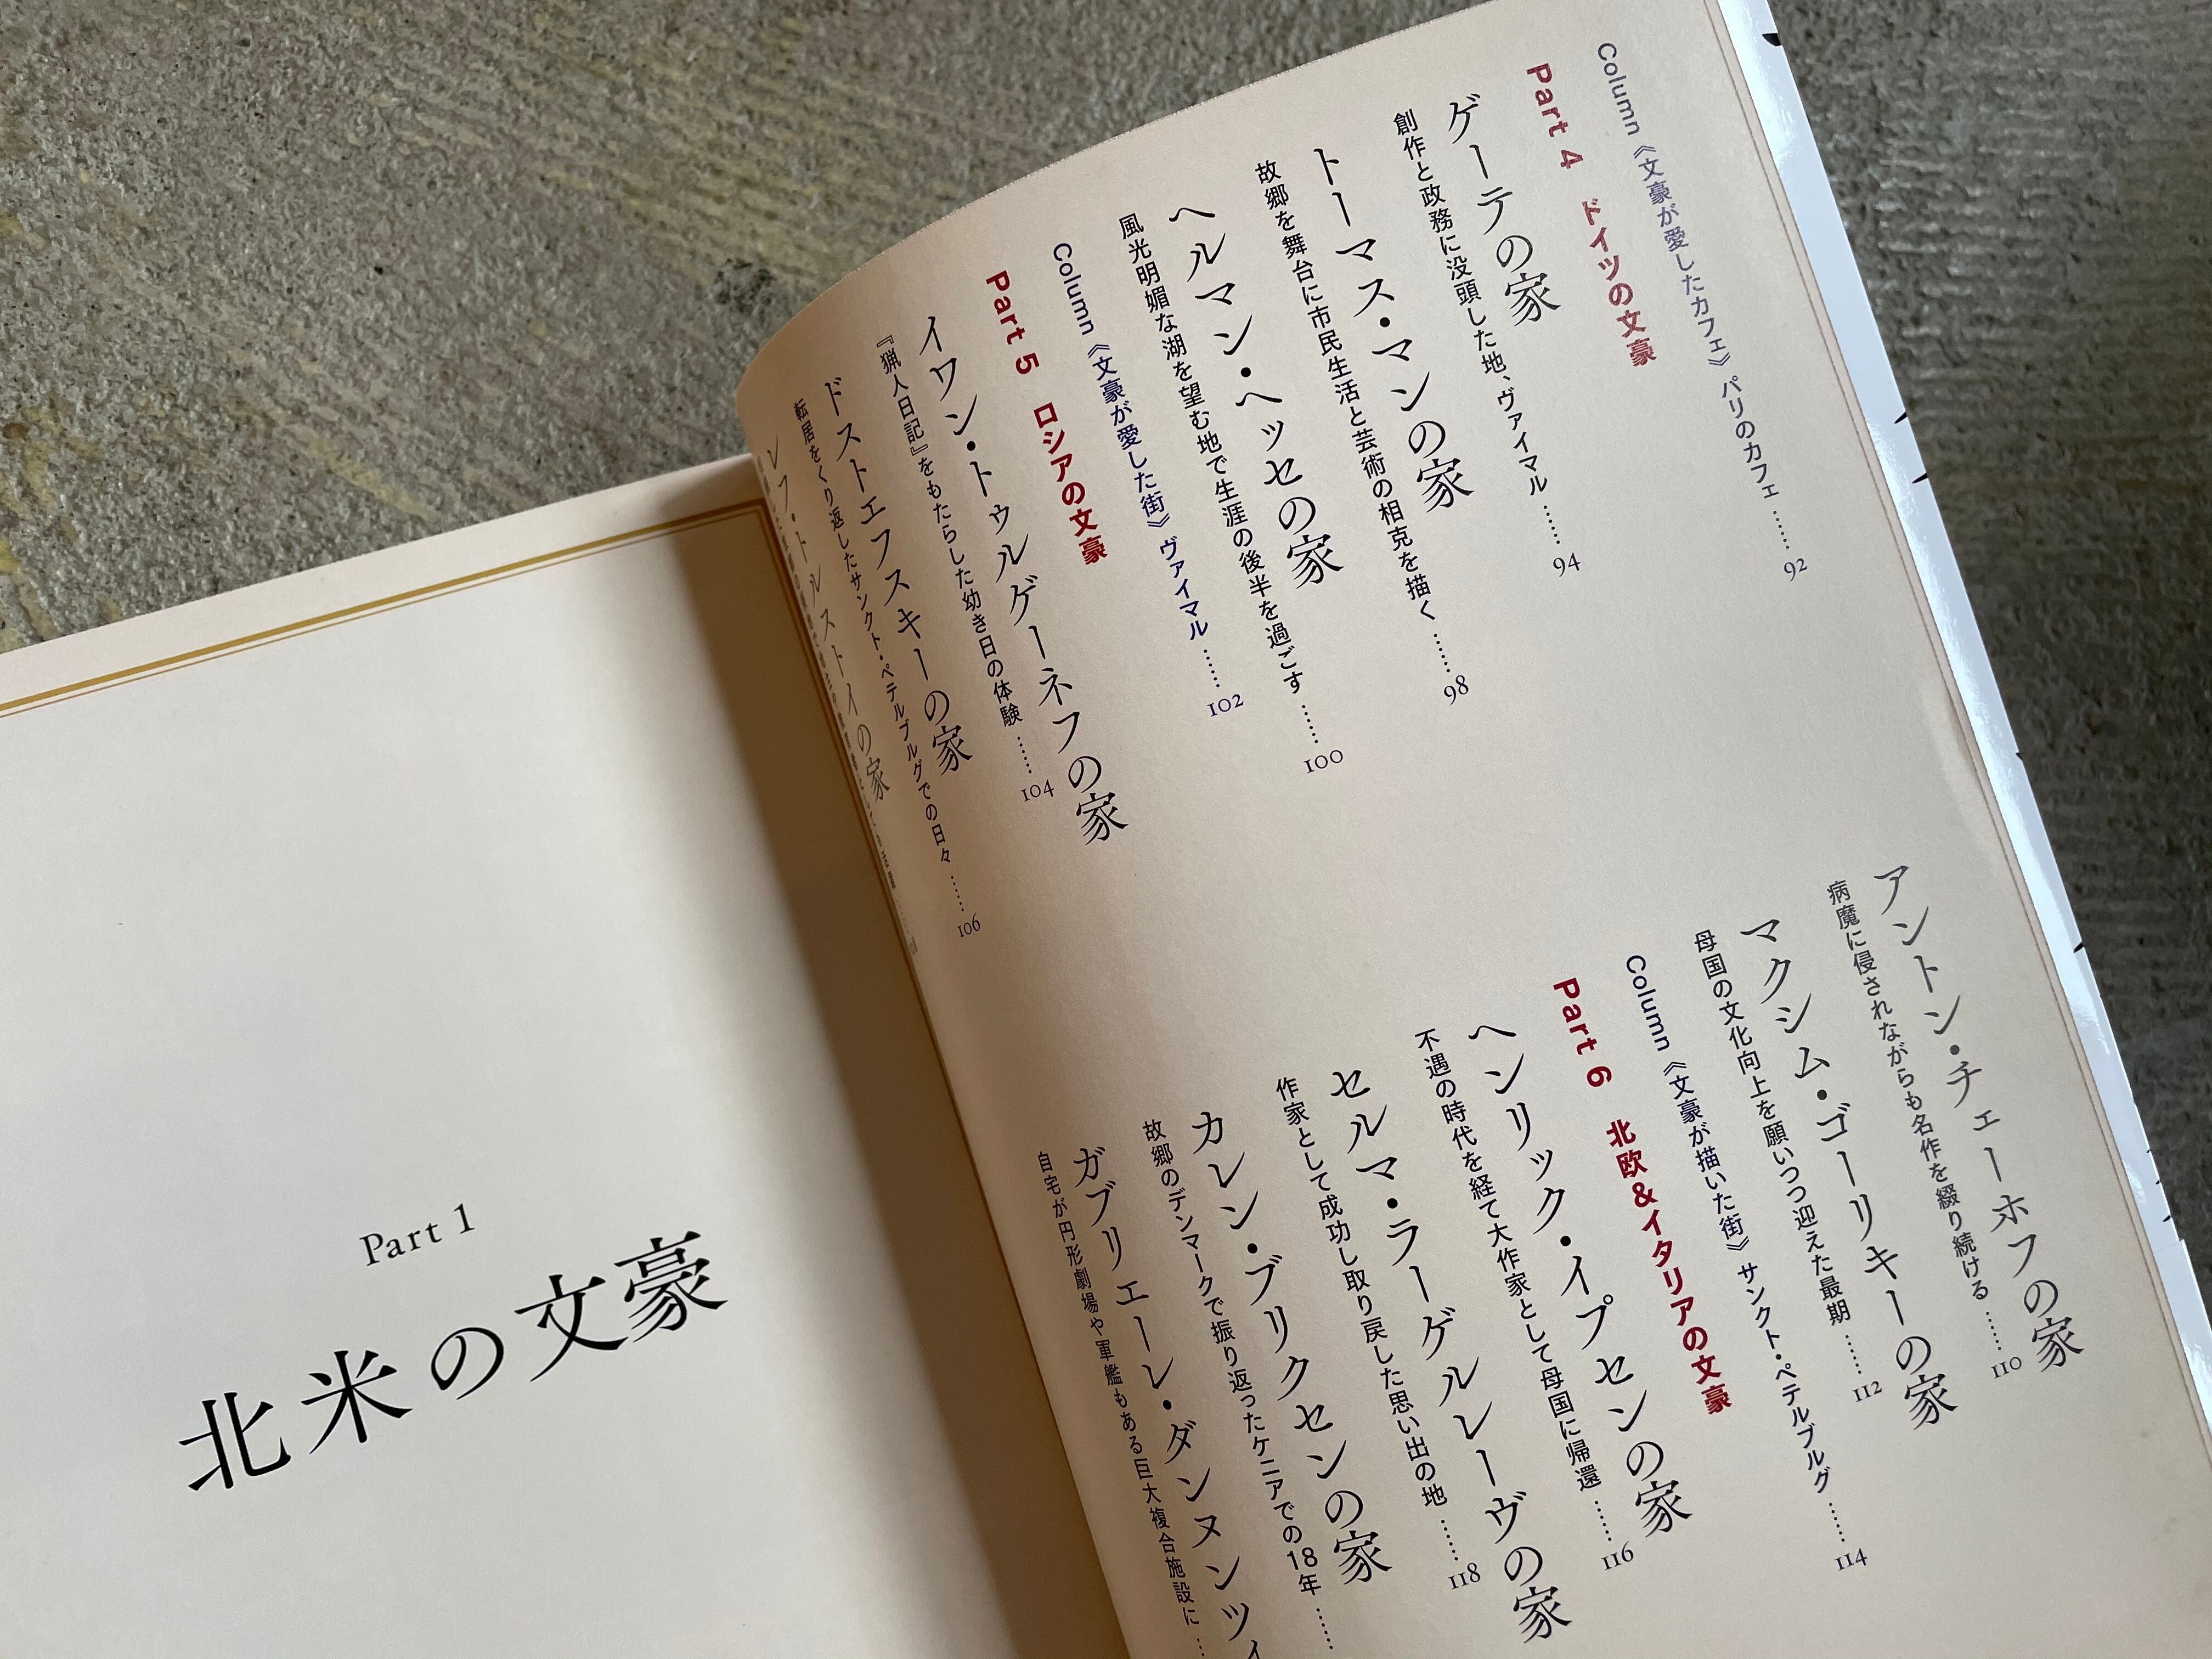 Column《文豪が愛したカフェ》パリのカフェ …… 92
Part 4 ドイツの文豪
ゲーテの家
創作と政務に没頭した地、ヴァイマル …… 94
トーマス・マンの家
故郷を舞台に市民生活と芸術の相克を描く …… 98
ヘルマン・ヘッセの家
風光明媚な湖を望む地で生涯の後半を過ごす …… 100
Column《文豪が愛した街》ヴァイマル …… 102
Part 5 ロシアの文豪
イワン・トゥルゲーネフの家
『猟人日記』をもたらした幼き日の体験 …… 104
ドストエフスキーの家
転居をくり返したサンクト・ペテルブルグでの日々 …… 106
レフ・トルストイの家
アントン・チェーホフの家
病魔に侵されながらも名作を綴り続ける …… 110
マクシム・ゴーリキーの家
母国の文化向上を願いつつ迎えた最期 …… 112
Column《文豪が描いた街》サンクト・ペテルブルグ …… 114
Part 6 北欧&イタリアの文豪
ヘンリック・イプセンの家
不遇の時代を経て大作家として母国に帰還 …… 116
セルマ・ラーゲルレーヴの家
作家として成功し取り戻した思い出の地 …… 118
カレン・ブリクセンの家
故郷のデンマークで振り返ったケニアでの18年 ……
ガブリエーレ・ダンヌンツィ
自宅が円形劇場や軍艦もある巨大複合施設に …
Part 1
北米の文豪